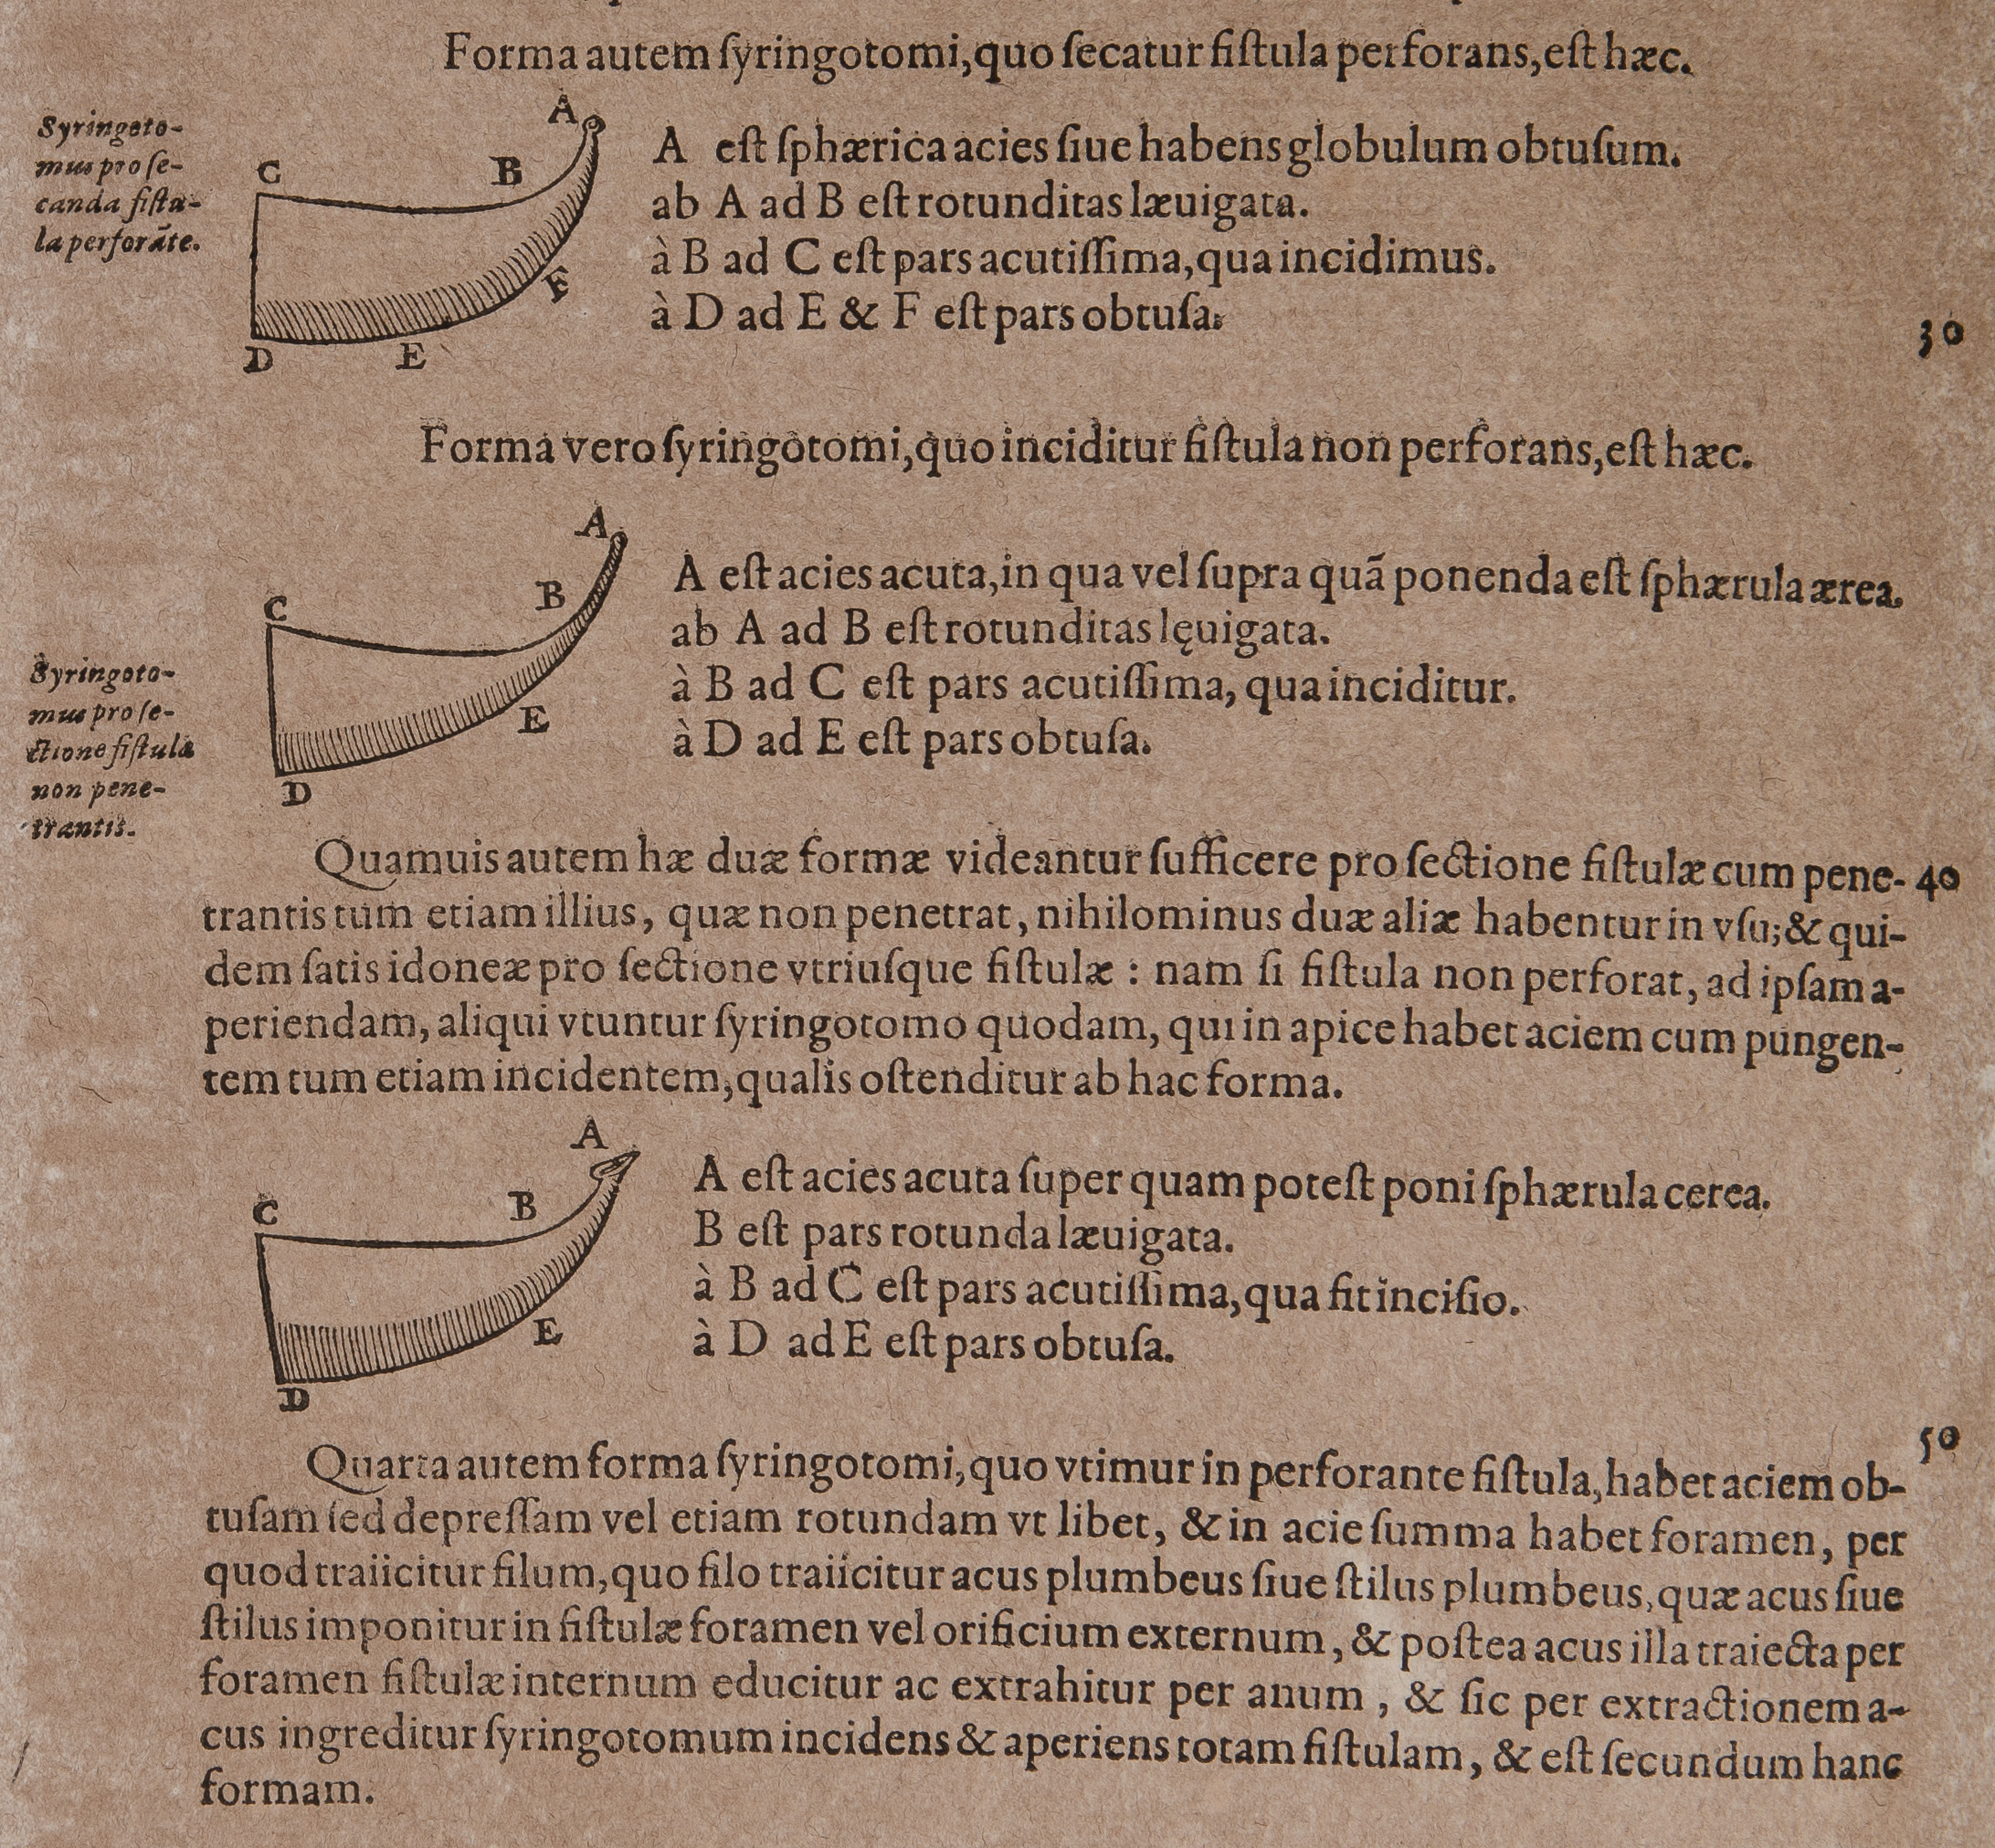 Forma autem ſyringotomi, quo ſecatur fiſtula perforans, eſt hæc.
Syringoto-
mus pro ſe-
canda fiſtu-
la perforāte.
A
B
C
D
E
F
A eſt ſphærica acies ſiue habens globulum obtuſum.
ab A ad B eſt rotunditas læuigata.
à B ad C eſt pars acutiſſima, qua incidimus.
à D ad E & F eſt pars obtuſa.
30
Forma vero ſyringotomi, quo inciditur fiſtula non perforans, eſt hæc.
Syringoto-
mus pro ſe-
ctione fiſtulæ
non pene-
trantis.
A
B
C
D
E
A eſt acies acuta, in qua vel ſupra quā ponenda eſt ſphærula ærea.
ab A ad B eſt rotunditas lęuigata.
à B ad C eſt pars acutiſſima, qua inciditur.
à D ad E eſt pars obtuſa.
Quamuis autem hæ duæ formæ videantur ſufficere pro ſectione fiſtulæ cum pene- 40
trantis tum etiam illius, quæ non penetrat, nihilominus duæ aliæ habentur in vſu; & qui-
dem ſatis idoneæ pro ſectione vtriuſque fiſtulæ : nam ſi fiſtula non perforat, ad ipſam a-
periendam, aliqui vtuntur ſyringotomo quodam, qui in apice habet aciem cum pungen-
tem tum etiam incidentem, qualis oſtenditur ab hac forma.
A
B
C
D
E
A eſt acies acuta ſuper quam poteſt poni ſphærula cerea.
B eſt pars rotunda læuigata.
à B ad C eſt pars acutiſſima, qua fit inciſio.
à D ad E eſt pars obtuſa.
50
Quarta autem forma ſyringotomi, quo vtimur in perforante fiſtula, habet aciem ob-
tuſam ſed depreſſam vel etiam rotundam vt libet, & in acie ſumma habet foramen, per
quod traiicitur filum, quo filo traiicitur acus plumbeus ſiue ſtilus plumbeus, quæ acus ſiue
ſtilus imponitur in fiſtulæ foramen vel orificium externum, & poſtea acus illa traiecta per
foramen fiſtulæ internum educitur ac extrahitur per anum, & ſic per extractionem a-
cus ingreditur ſyringotomum incidens & aperiens totam fiſtulam, & eſt ſecundum hanc
formam.